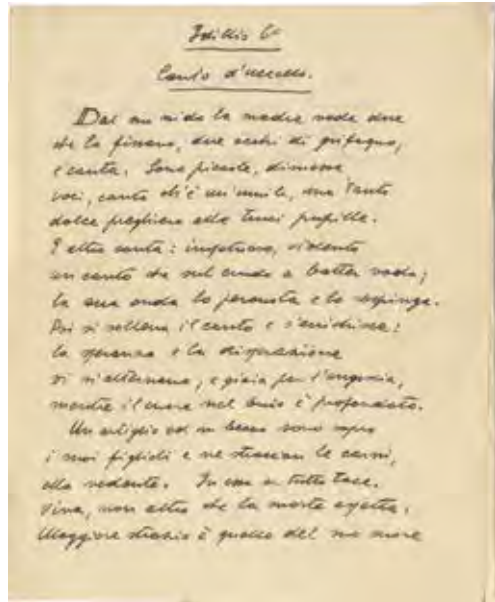 Idillio 6°
Canto d'uccello.
Dal suo nido la madre vede due
che la fissano, due occhi di grifagno,
e canta. Sono piccole, dimesse
voci, canto ch'è un umile, ma tanto
dolce preghiera alle truci pupille.
E altro canta: impetuoso, violento
un canto che sul crudo a batter vada;
la sua onda lo percuota e lo respinga.
Poi si solleva il canto e s'
la speranza e la disperazione
vi si alternano, e gioia per l'angoscia,
mentre il cuore nel buio è profondato.
Un artiglio ed un becco sono sopra
i suoi figlioli e ne straccian le carni,
ella vedente. In essa tutto tace.
Viva, non altro che la morte aspetta.
Maggiore strazio è quello del suo cuore